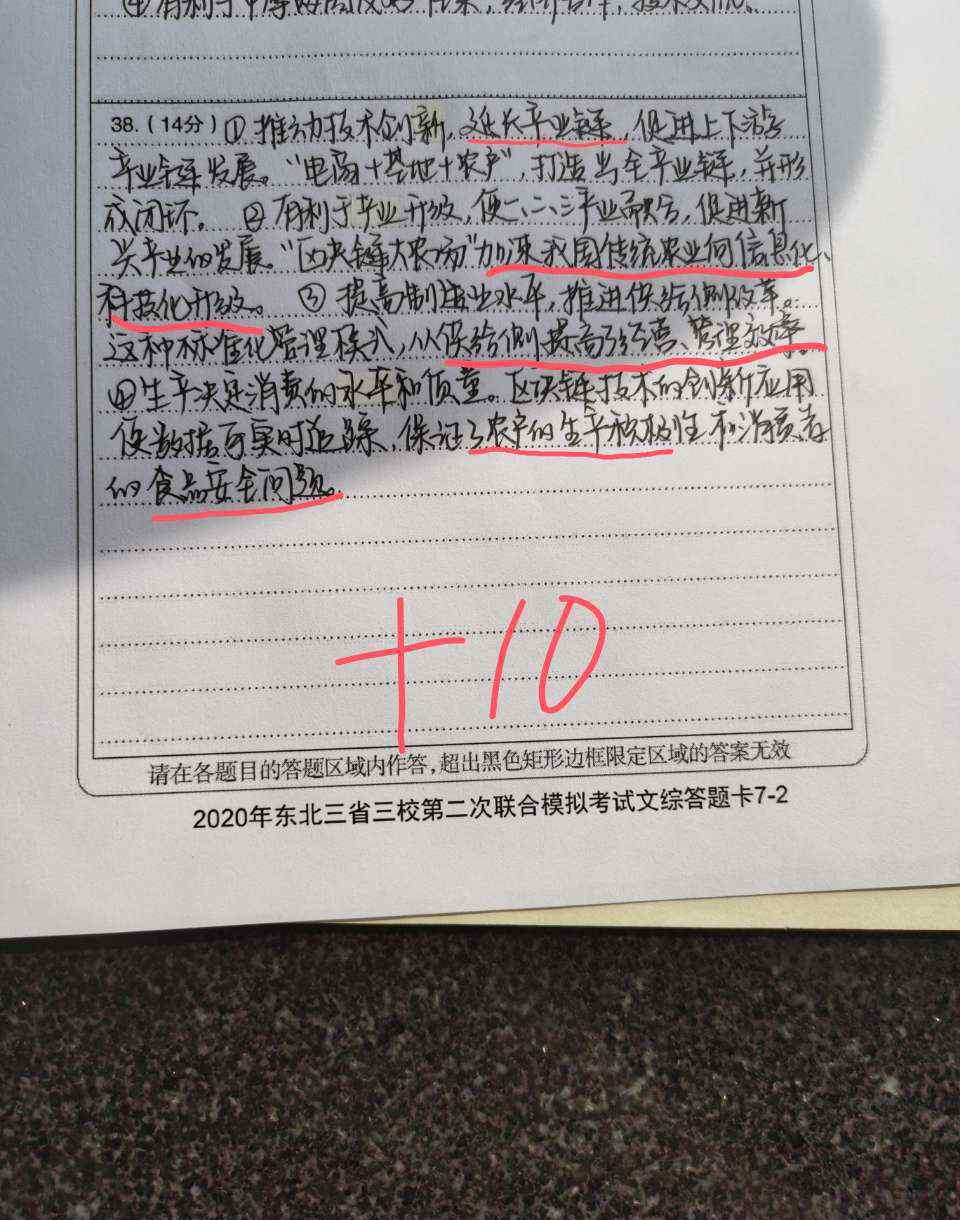 ④有利于中
38.(14分)①推动技术创新,延长产业链,促进上下游
产业链发展。“电商+基地+农户”,打造出全产业链,并形
成闭环。②有利于产业升级,使一、二、三产业融合,促进新
兴产业的发展。“区块链大农场”加速我国传统农业向信息化、
科技化升级。③提高制造业水平,推进供给侧改革。
这种标准化管理模式,从供给侧提高了经营、管理效率。
④生产决定消费的水平和质量。区块链技术的创新应用
使数据可实时追踪,保证了农户的生产积极性和消费者
的食品安全问题。
+10
请在各题目的答题区域内作答,超出黑色矩形边框限定区域的答案无效
2020年东北三省三校第二次联合模拟考试文综答题卡7-2